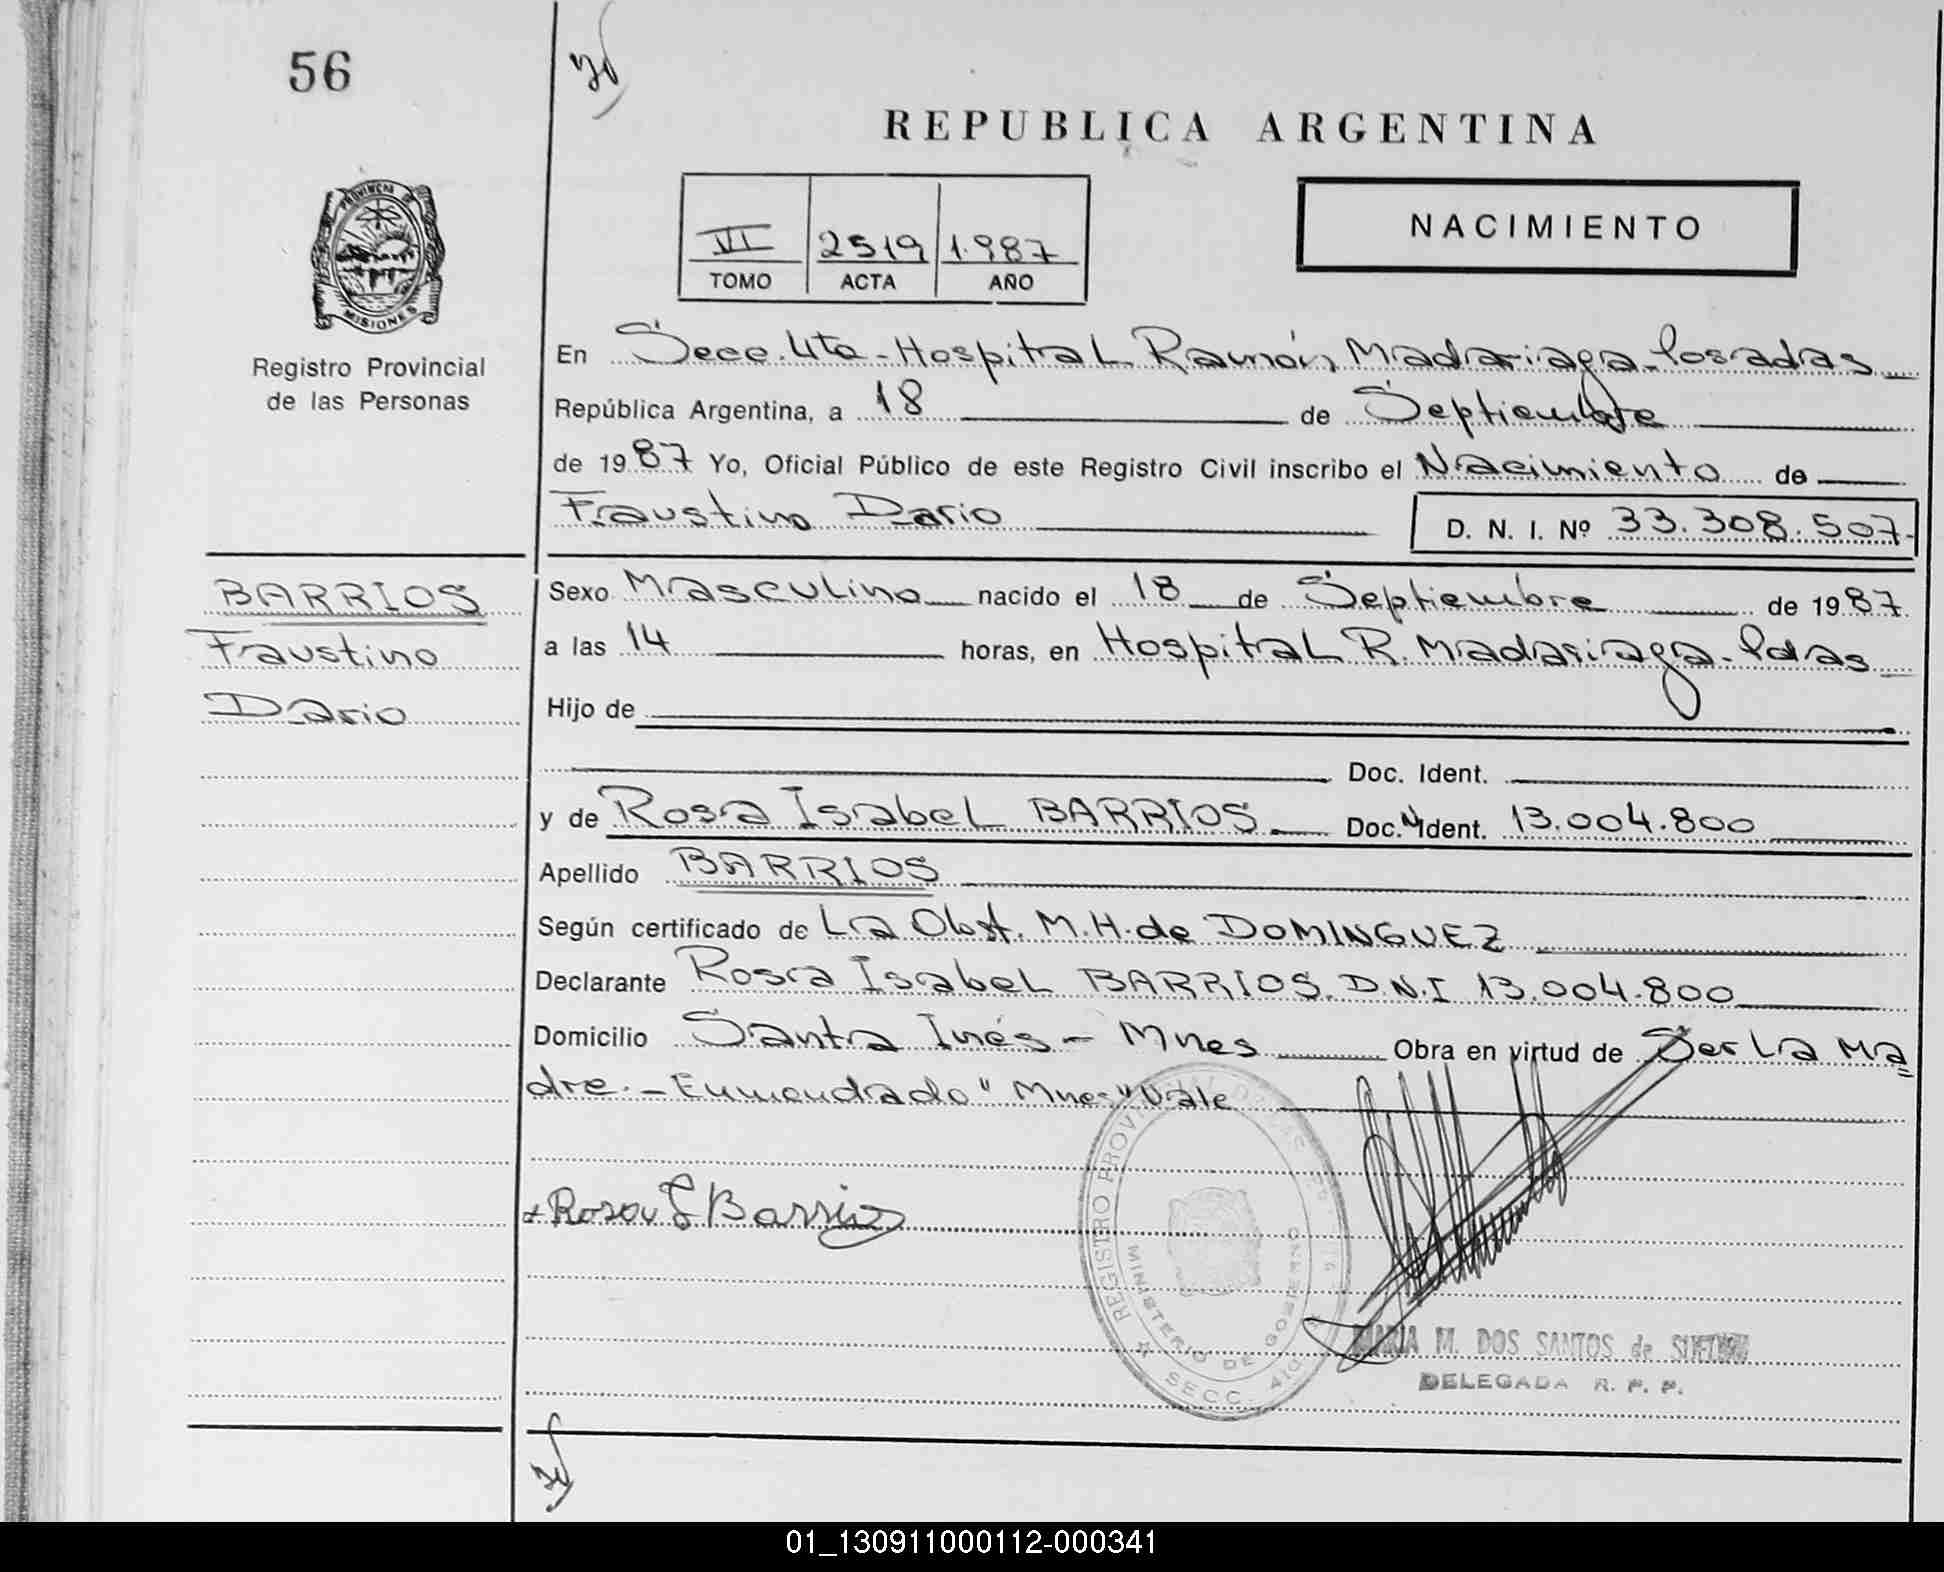 56
REPUBLICA ARGENTINA
VI 2519 1.987
TOMO ACTA AÑO
NACIMIENTO
PROVINCIA DE
MISIONES
Registro Provincial
de las Personas
En Secc. 4ta - Hospital Ramón Madariaga - Posadas
República Argentina, a 18 de Septiembre
de 1987 Yo, Oficial Público de este Registro Civil inscribo el Nacimiento de
Faustino Dario D. N. I. Nº 33.308.507-
BARRIOS
Faustino
Dario
Sexo Masculino nacido el 18 de Septiembre de 1987.
a las 14 horas, en Hospital R. Madariaga - Pdas
Hijo de
Doc. Ident.
y de Rosa Isabel BARRIOS Doc. Ident. 13.004.800
Apellido BARRIOS
Según certificado de La Obst. M.H. de DOMINGUEZ
Declarante Rosa Isabel BARRIOS. D.N.I 13.004.800
Domicilio Santa Inés - Mnes Obra en virtud de Ser La Ma
dre. - Enmendado "Mnes" Vale
Rosa I Barrios
REGISTRO PROVINCIAL DE LAS PERSONAS
MINISTERIO DE GOBIERNO
SECC. 4ta.
MARIA M. DOS SANTOS de
DELEGADA R. P. P.
01_130911000112-000341